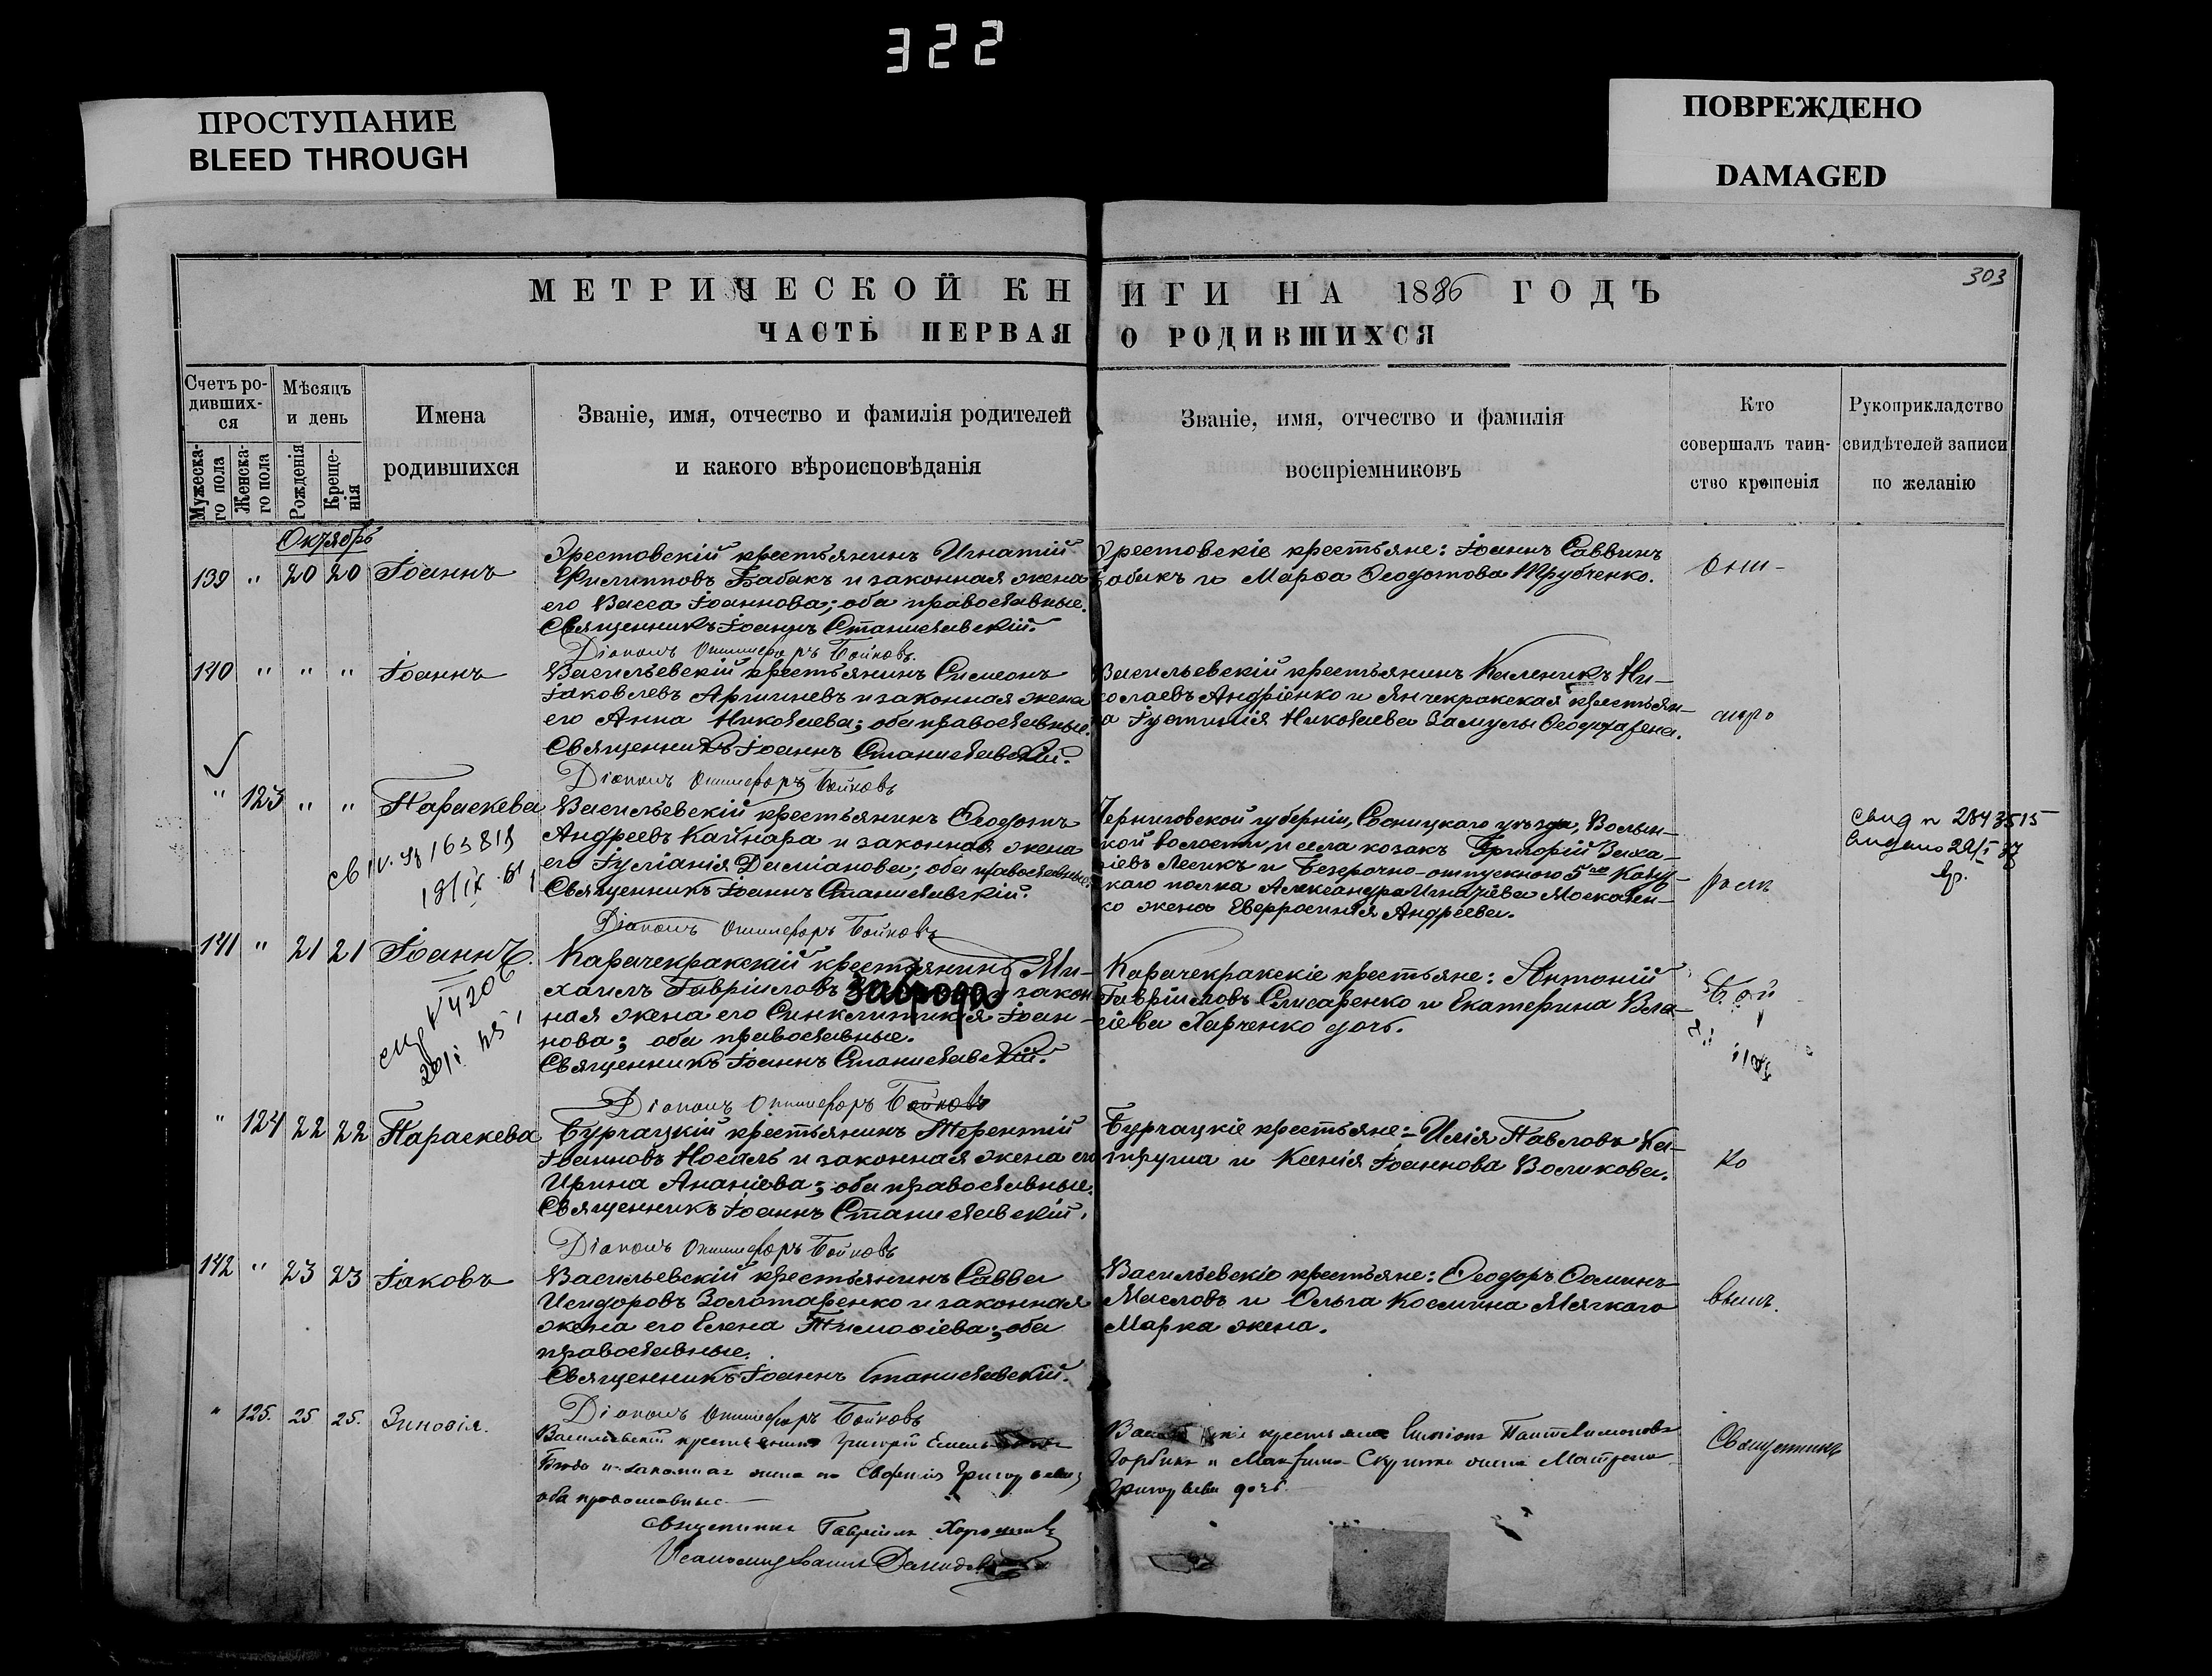 322
ПРОСТУПАНИЕ
BLEED THROUGH
ПОВРЕЖДЕНО
DAMAGED
303
МЕТРИЧЕСКОЙ КНИГИ НА 1886 ГОДЪ
ЧАСТЬ ПЕРВАЯ О РОДИВШИХСЯ
Счетъ ро-
дивших-
ся
Мужеска-
го пола
Женска-
го пола
Мѣсяцъ
и день
Рожденія
Креще-
нія
Имена
родившихся
Званіе, имя, отчество и фамилія родителей
и какого вѣроисповѣданія
Званіе, имя, отчество и фамилія
воспріемниковъ
Кто
совершалъ таин-
ство крещенія
Рукоприкладство
свидѣтелей записи
по желанію
Октябрь
139 " 20 20 Іоаннъ
Эрестовскій крестьянинъ Игнатій
Филипповъ Бабакъ и законная жена
его Васса Іоаннова; оба православные.
Священникъ Іоаннъ Станиславскій.
Діаконъ Онисифоръ Бойковъ.
Эрестовскіе крестьяне: Іоаннъ Саввинъ
Бабикъ и Марѳа Ѳеодотова Трубченко.
140 " " " Іоаннъ
Васильевскій крестьянинъ Симеонъ
Іаковлевъ Аришневъ и законная жена
его Анна Николаева; оба православные.
Священникъ Іоаннъ Станиславскій.
Діаконъ Онисифоръ Бойковъ
Васильевскій крестьянинъ Каленикъ Ни-
колаевъ Андріенко и Янчекракская крестьян-
ка Іустинія Николаева Замулы
" 123 " " Параскева
Васильевскій крестьянинъ Ѳеодотъ
Андреевъ Кайнара и законная жена
его Іуліанія Даміанова; оба православные.
Священникъ Іоаннъ Станиславскій.
Діаконъ Онисифоръ Бойковъ
Черниговской губерніи, Сосницкаго уѣзда, Волын-
ской волости, и села козакъ Григорій Заха-
ріевъ Лесикъ и Безсрочно-отпускного 5го
скаго полка Александра Игнатіева Москален-
ко жена Евфросинія Андреева.
163818
свид n 2843515
выдано 29/I 37
141 " 21 21 Іоаннъ.
Карачекракскій крестьянинъ Ми-
хаилъ Гавріиловъ Заврода и закон-
ная жена его Синклитикія Іоан-
нова; оба православные.
Священникъ Іоаннъ Станиславскій.
Діаконъ Онисифоръ Бойковъ
Карачекракскіе крестьяне: Антоній
Гавріиловъ Слисаренко и Екатерина Вла-
сіева Харченко дочь.
" 124 22 22 Параскева
Бурчацкій крестьянинъ Терентій
Іоанновъ Носаль и законная жена его
Ирина Ананіева; оба православные.
Священникъ Іоаннъ Станиславскій.
Діаконъ Онисифоръ Бойковъ
Бурчацкіе крестьяне: Илія Павловъ Ка-
труша и Ксенія Іоаннова Воликова.
142 " 23 23 Іаковъ
Васильевскій крестьянинъ Савва
Исидоровъ Золотаренко и законная
жена его Елена Тимоѳіева; оба
православные.
Священникъ Іоаннъ Станиславскій.
Діаконъ Онисифоръ Бойковъ
Васильевскіе крестьяне: Ѳеодоръ Ѳоминъ
Масловъ и Ольга Космина Мягкаго
Марка жена.
" 125. 25 25. Зиновія.
Васильевскій крестьянинъ Григорій
и законная жена его Евфимія Григорьева;
оба православные
Священникъ Гавріилъ
Псаломщ Іоаннъ Демидовъ
крестьяне Симеонъ Пантелимоновъ
Горбинъ и
Григорьева дочь.
Священникъ